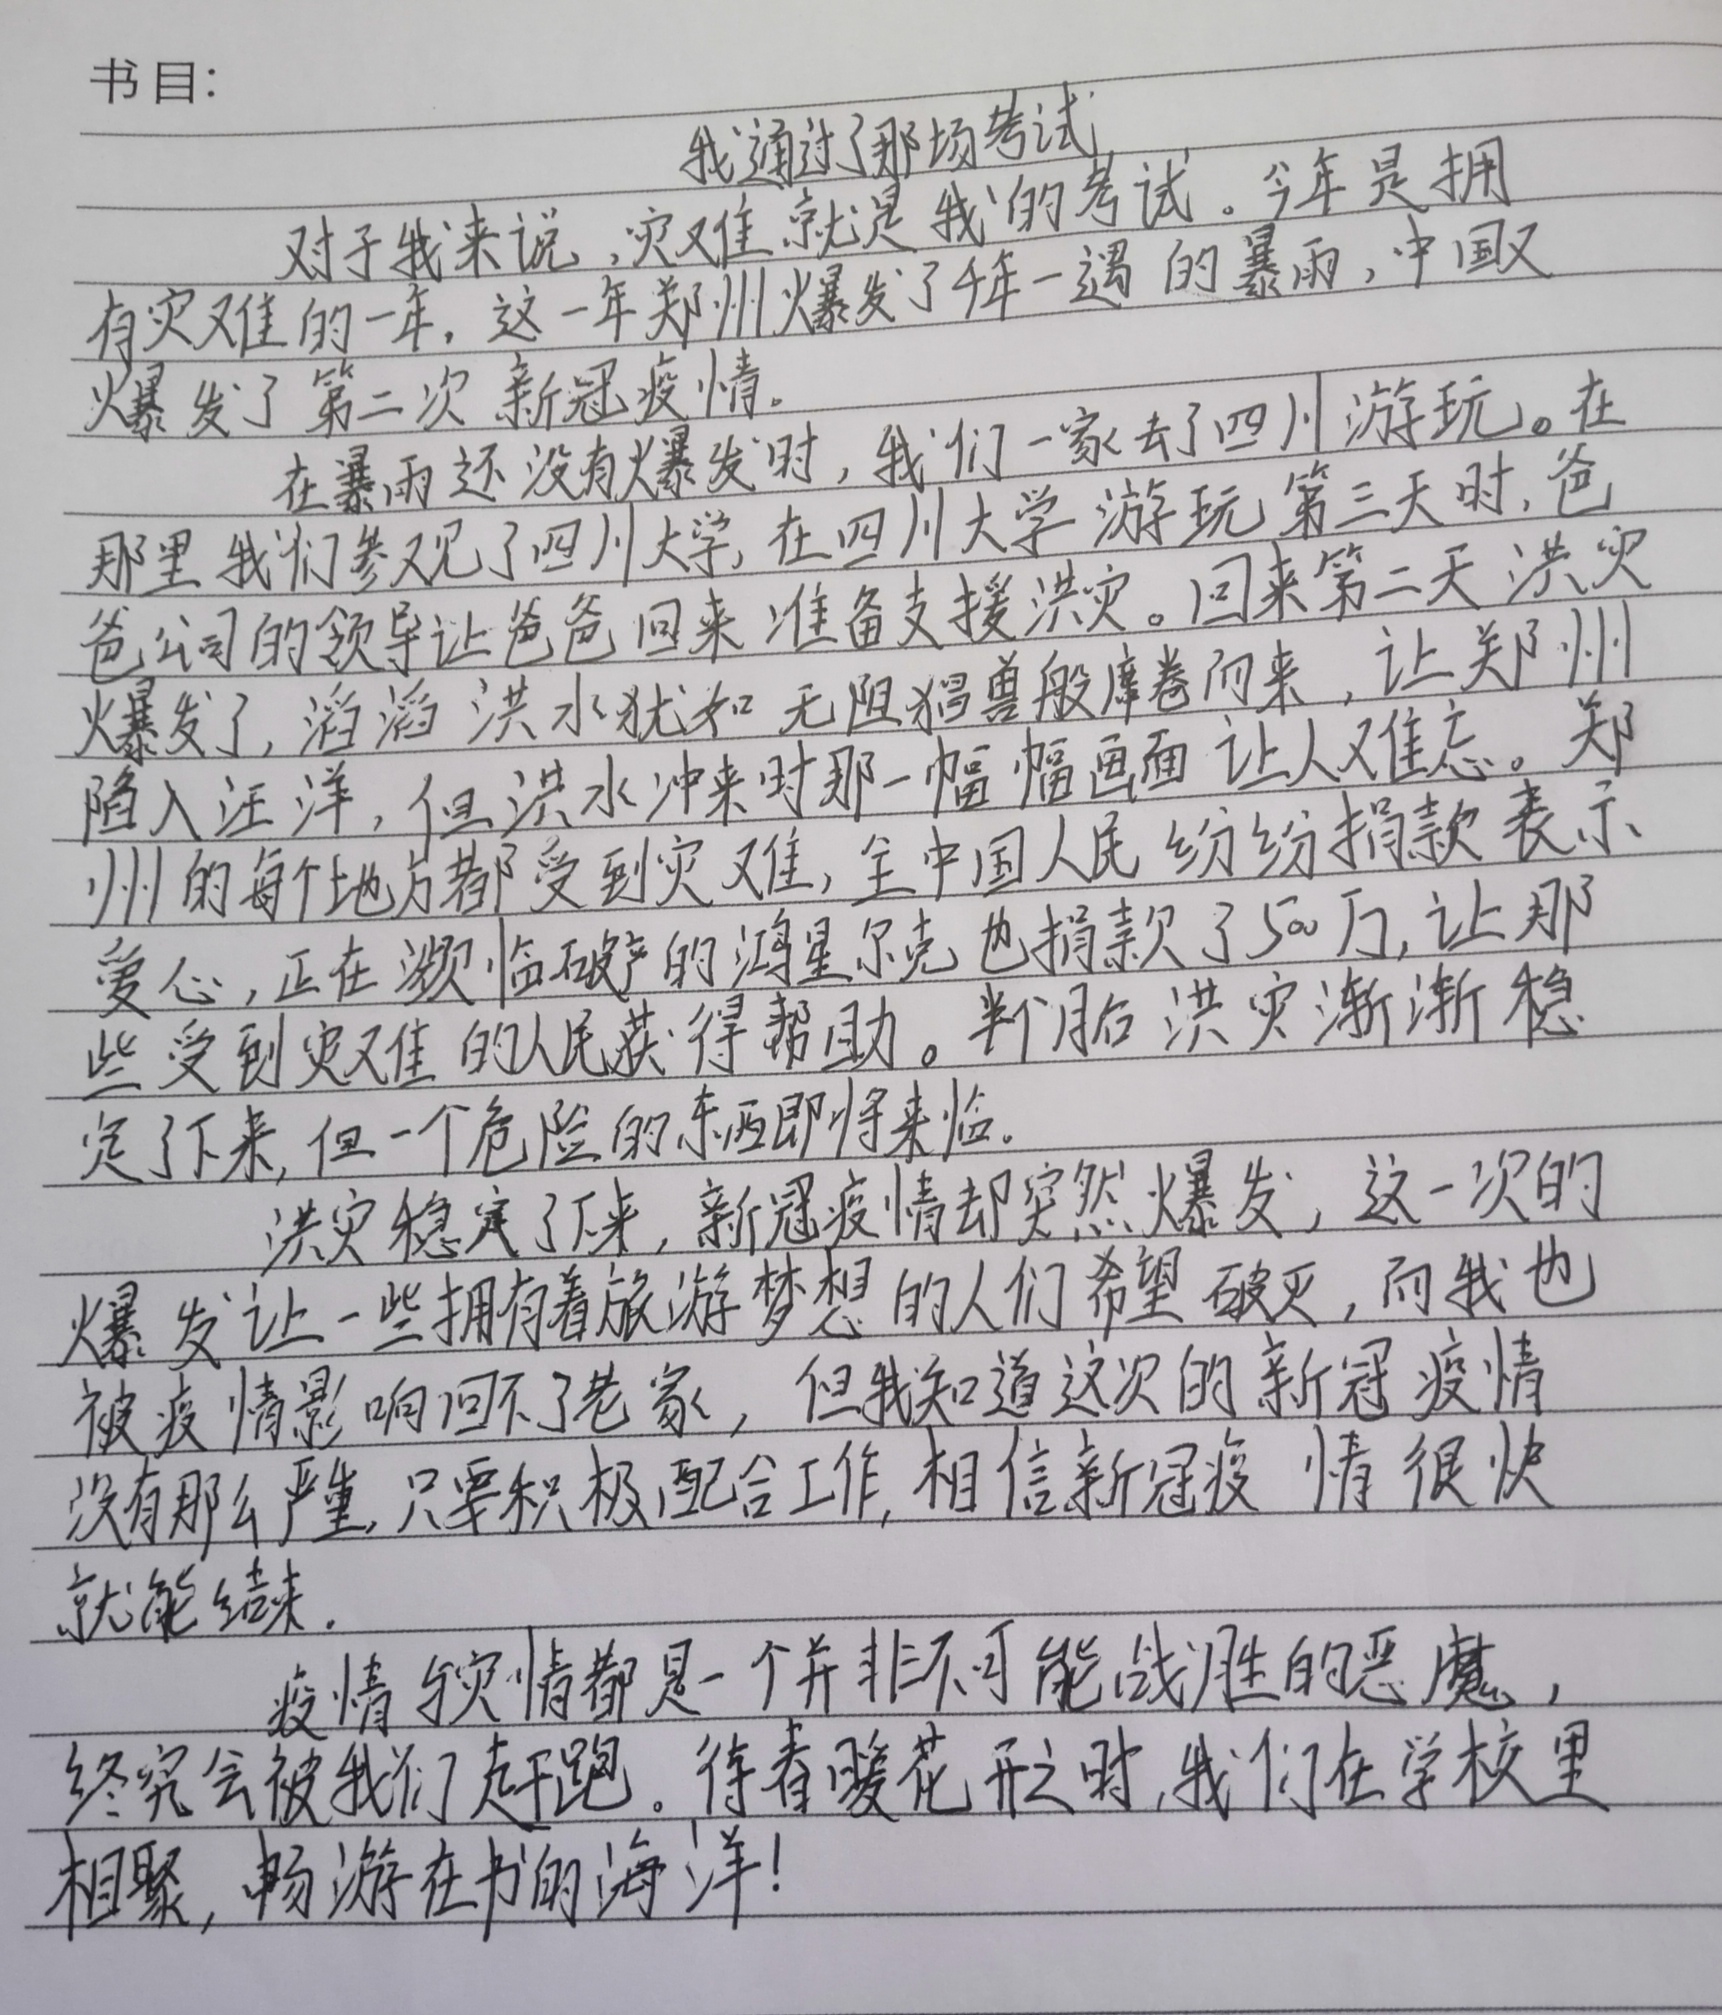 书目：
我通过了那场考试
对于我来说，灾难就是我的考试。今年是拥
有灾难的一年。这一年郑州爆发了千年一遇的暴雨，中国又
爆发了第二次新冠疫情。
在暴雨还没有爆发时，我们一家去了四川游玩。在
那里我们参观了四川大学，在四川大学游玩第三天时，爸
爸公司的领导让爸爸回来准备支援洪灾。回来第二天洪灾
爆发了，滔滔洪水犹如无阻猖兽般席卷而来，让郑州
陷入汪洋，但洪水冲来时那一幅幅画面让人难忘。郑
州的每个地方都受到灾难，全中国人民纷纷捐款表示
爱心，正在濒临破产的鸿星尔克也捐款了500万，让那
些受到灾难的人民获得帮助。半个月后洪灾渐渐稳
定了下来，但一个危险的东西即将来临。
洪灾稳定了下来，新冠疫情却突然爆发，这一次的
爆发让一些拥有着旅游梦想的人们希望破灭，而我也
被疫情影响回不了老家，但我知道这次的新冠疫情
没有那么严重，只要积极配合工作，相信新冠疫情很快
就能结束。
疫情与灾情都是一个并非不可能战胜的恶魔，
终究会被我们赶跑。待春暖花开之时，我们在学校里
相聚，畅游在书的海洋！